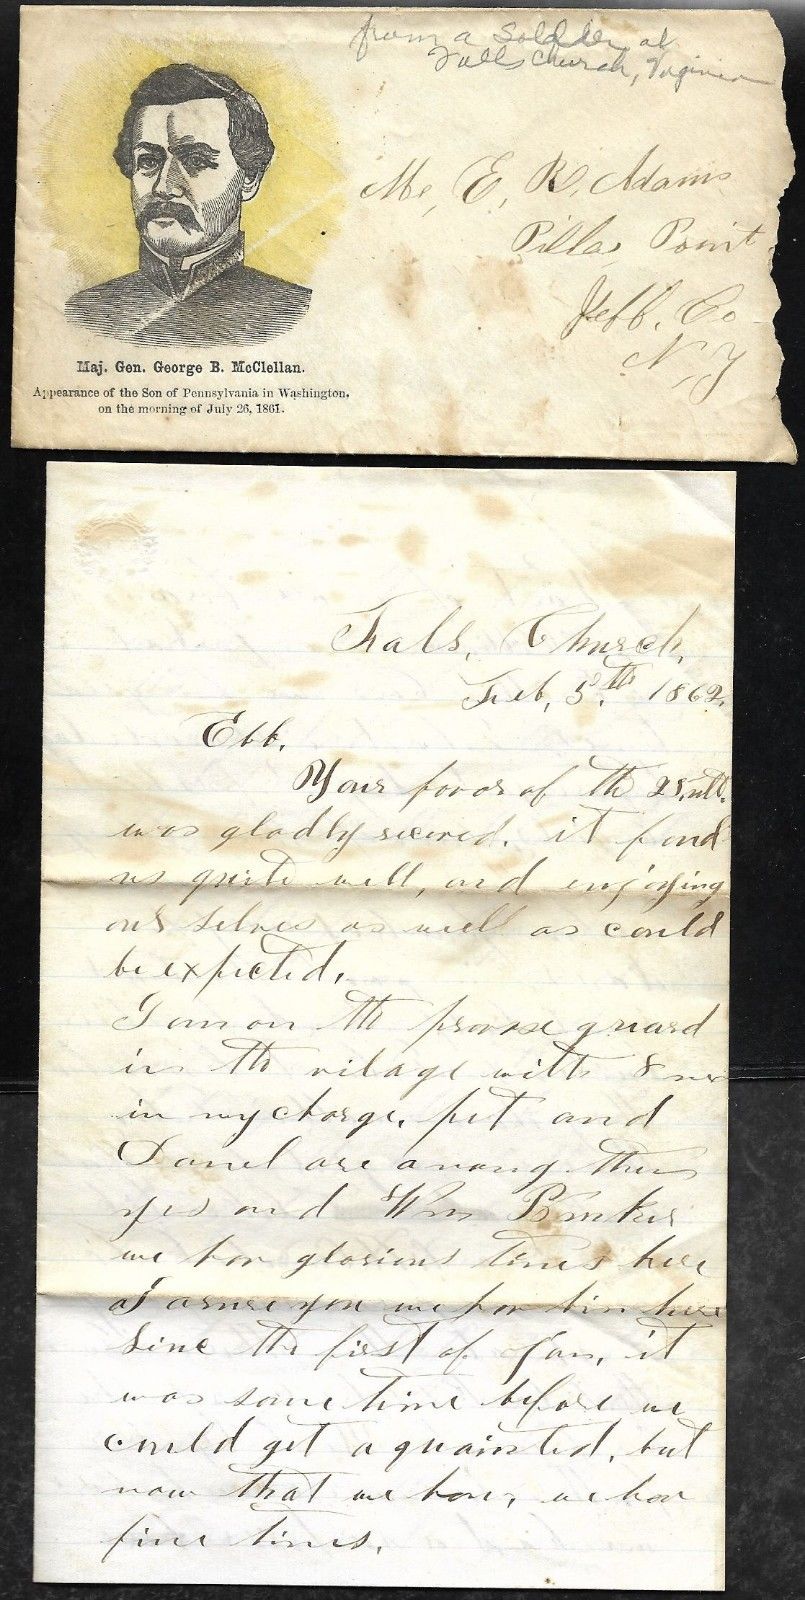 from a Soldier at
Falls Church, Virginia
Mr, E, R, Adams
Pillar Point
Jeff. Co
N, Y
Maj. Gen. George B. McClellan.
Appearance of the Son of Pennsylvania in Washington,
on the morning of July 26, 1861.
Fals, Church,
Feb, 5.th 1862,
Ebb.
Your favor of the 25, ult.
was gladly receved. it fond
us quite well, and enjoying
our selves as well as could
be expected,
I am on the provose guard
in the vilage with 8 men
in my charge, pet and
Danel are among them
yes and Wm
we hav glorious times here
I asure you we hav bin here
Sinc the first of Jan, it
was some time before we
could get aquainted, but
now that we have, we hav
fine times.